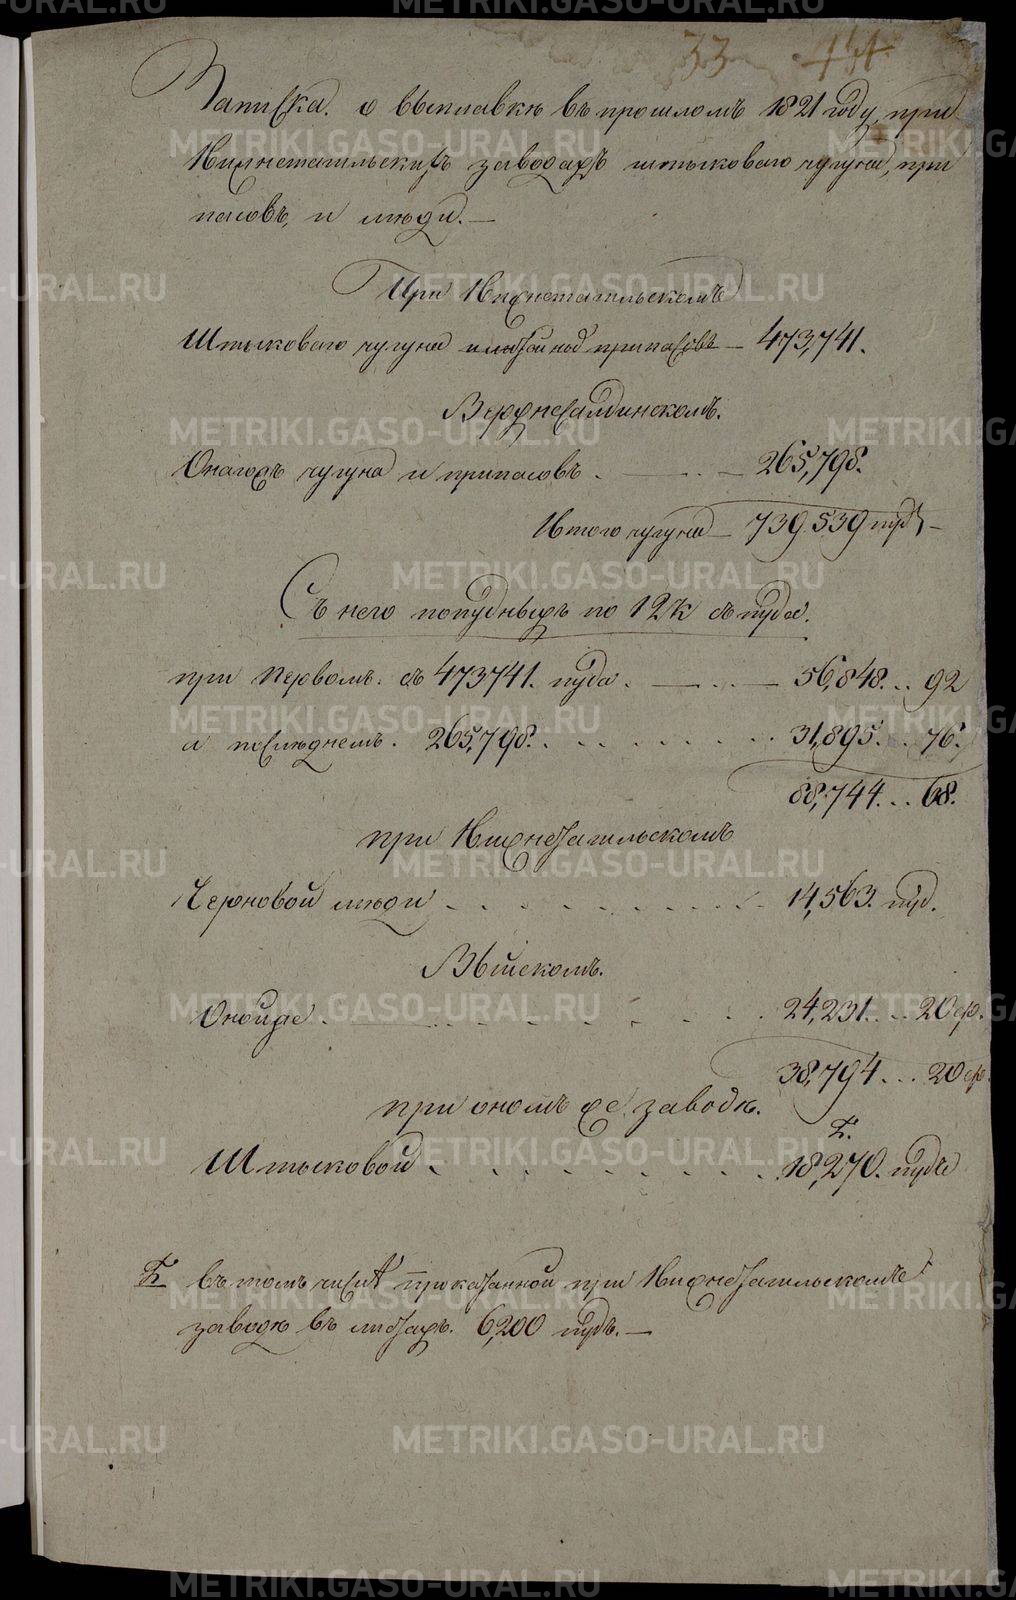 33 44
Записка. о выплавкѣ въ прошломъ 1821 году, при
Нижнетагильскихъ заводахъ штыковаго чугуна, при
пасовъ, и мѣди. —
При Нижнетагильскомъ
Штыковаго чугуна припасовъ — 473,741.
Верхнесалдинскомъ.
Онагожъ чугуна и припасовъ . — . . — 265,798.
Итого чугуна — 739.539 пудъ —
Съ него попудныхъ по 12 к съ пуда.
при первомъ. съ 473741. пуда. — . . — 56,848. . . 92
а послѣднемъ. 265,798. . . . . . . . . . 31,895. . . 76.
88,744. . . 68.
при Нижнетагильскомъ
Черновой мѣди . . . . . . . . . . 14,563. пуд.
Выйскомъ.
Оной же . — . . . . . . . 24,231. . . 20 ф.
38,794. . . 20 ф.
при ономъ же заводѣ.
Штыковой . . . . . . . . . . 18,270. пудъ
въ томъ числѣ показанной при Нижнетагильскомъ
заводѣ въ 6,200 пудъ. —
METRIKI.GASO-URAL.RU